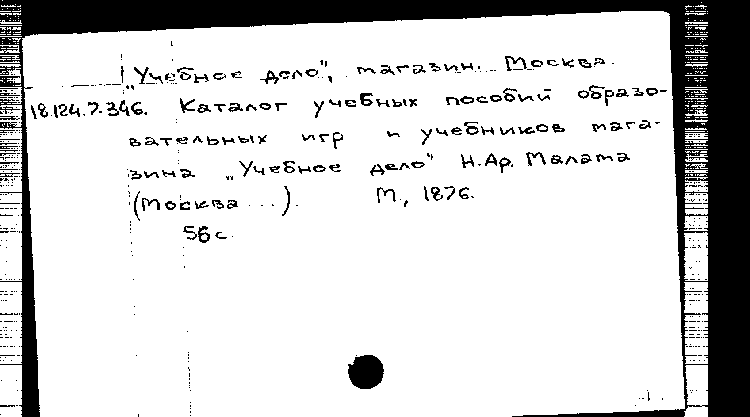 „Учебное дело", магазин. Москва.
18.124.7.346. Каталог учебных пособий образо-
вательных игр и учебников мага-
зина „Учебное дело" Н.Ар. Малата
(Москва ...). М., 1876.
56 с.